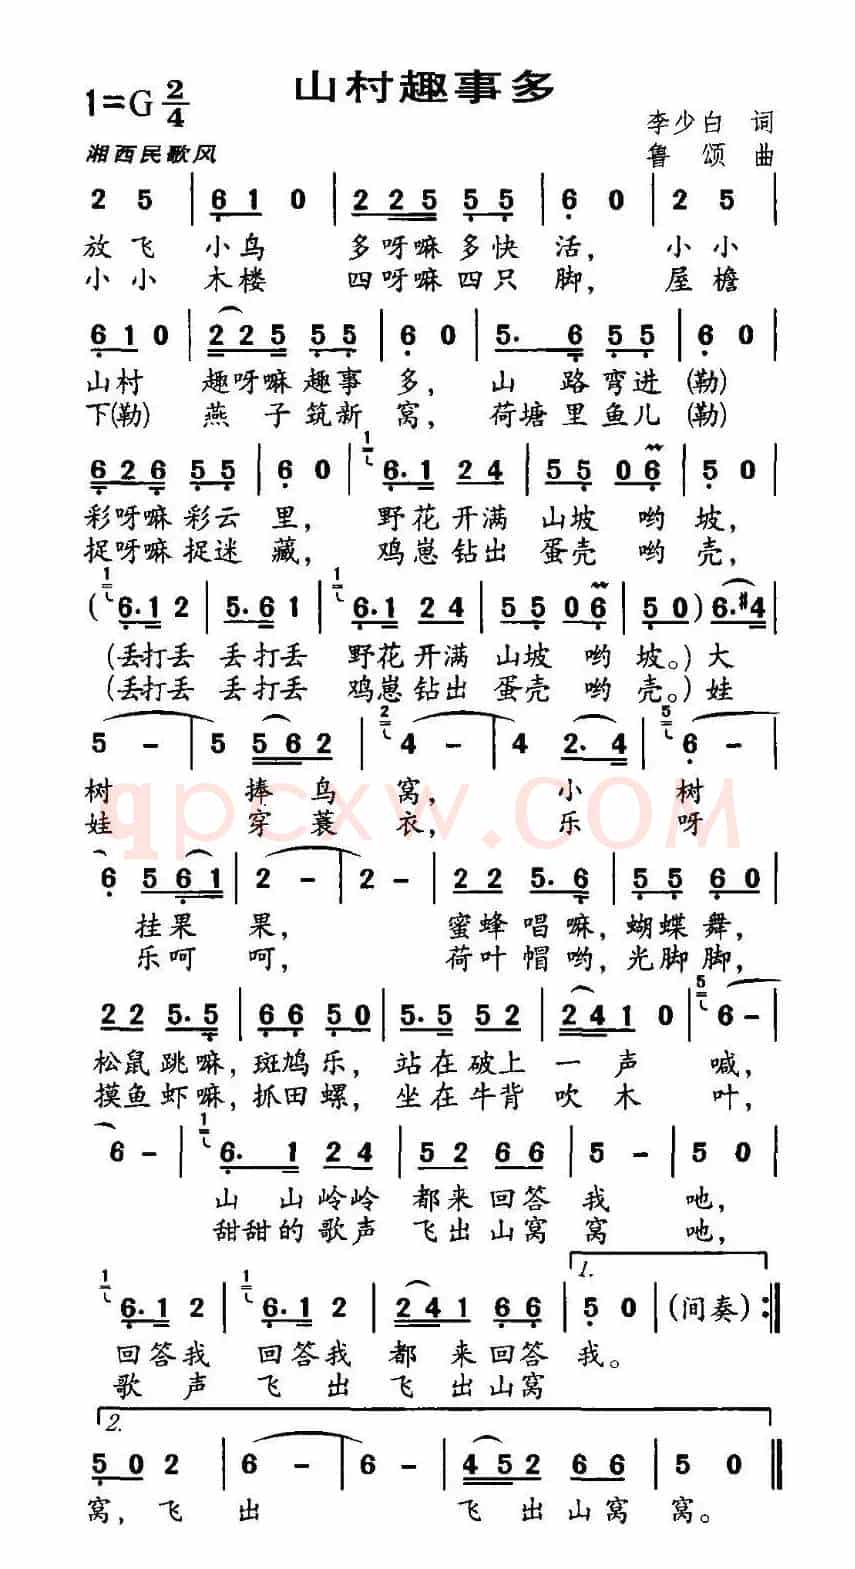 山村趣事多
1=G 2/4
李少白 词
湘西民歌风
鲁 颂 曲
2 5 | 6 1 0 | 2 2 5 5 5 | 6 0 | 2 5 |
放飞 小鸟 多呀嘛多快 活， 小小
小小 木楼 四呀嘛四只 脚， 屋檐
6 1 0 | 2 2 5 5 5 | 6 0 | 5. 6 5 5 | 6 0 |
山村 趣呀嘛趣事 多， 山 路弯进 (勒)
下(勒) 燕 子筑新 窝， 荷塘里鱼儿 (勒)
6 2 6 5 5 | 6 0 | 1 6. 1 2 4 | 5 5 0 6 | 5 0 |
彩呀嘛彩云 里， 野花开满 山坡 哟 坡，
捉呀嘛捉迷 藏， 鸡崽钻出 蛋壳 哟 壳，
( 1 6. 1 2 | 5. 6 1 | 1 6. 1 2 4 | 5 5 0 6 | 5 0 ) 6. #4 |
(丢打丢 丢打丢 野花开满 山坡 哟 坡。) 大
(丢打丢 丢打丢 鸡崽钻出 蛋壳 哟 壳。) 娃
5 - | 5 5 6 2 | 2 4 - | 4 2. 4 | 5 6 - |
树 捧鸟 窝， 小 树
娃 穿蓑 衣， 乐 呀
qpcxw.COM
6 5 6 1 | 2 - | 2 - | 2 2 5. 6 | 5 5 6 0 |
挂果 果， 蜜蜂唱嘛， 蝴蝶舞，
乐呵 呵， 荷叶帽哟， 光脚脚，
2 2 5. 5 | 6 6 5 0 | 5. 5 5 2 | 2 4 1 0 | 5 6 - |
松鼠跳嘛， 斑鸠乐， 站在破上 一 声 喊，
摸鱼虾嘛， 抓田螺， 坐在牛背 吹 木 叶，
6 - | 1 6. 1 2 4 | 5 2 6 6 | 5 - | 5 0 |
山 山岭岭 都来回答 我 吔，
甜甜的歌声 飞出山窝 窝 吔，
1.
1 6. 1 2 | 1 6. 1 2 | 2 4 1 6 6 | 5 0 | (间奏) :||
回答我 回答我 都 来回答 我。
歌 声 飞 出 飞 出山窝
2.
5 0 2 | 6 - | 6 - | 4 5 2 6 6 | 5 0 ||
窝， 飞 出 飞 出山窝 窝。